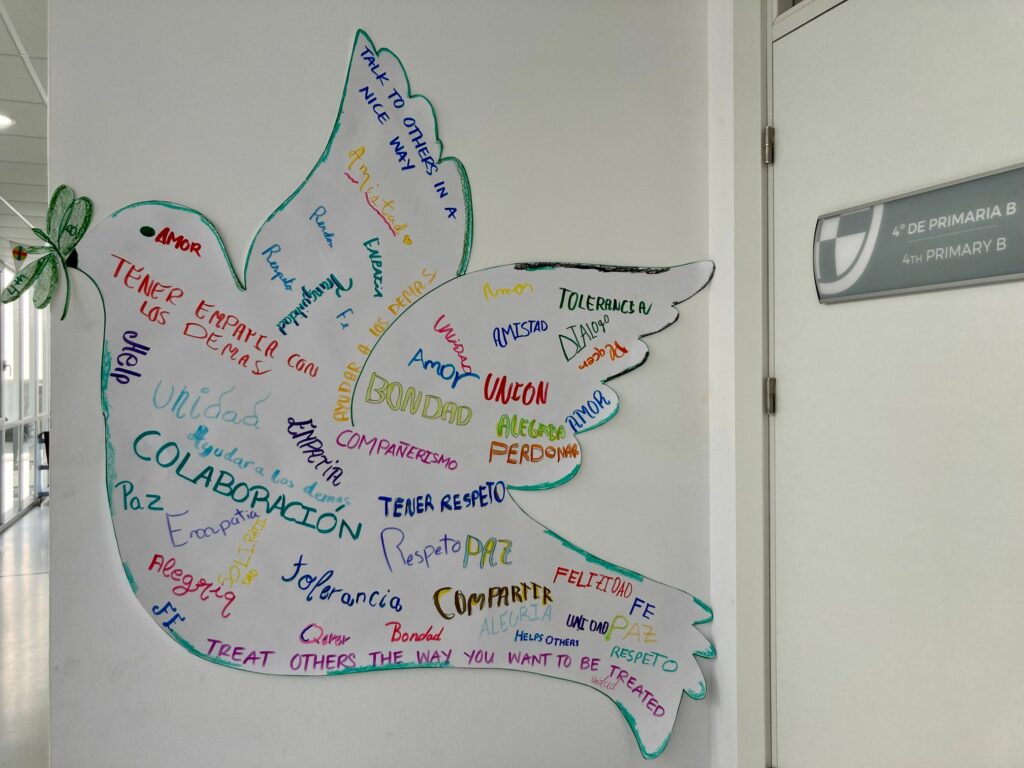 TALK TO OTHERS IN A
NICE WAY
Amistad
Perdon
Respeto
Tranquilidad
Fe
AYUDAR A LOS DEMÁS
AMOR
TENER EMPATIA CON
LOS DEMAS
Help
Unidad
Ayudar a los demás
COLABORACIÓN
EMPATIA
Paz
Alegria
FE
Amor
TOLERANCIA
DIALOGO
UNIDAD
AMISTAD
AMOR
BONDAD
UNION
AMOR
PERDONAR
COMPAÑERISMO
TENER RESPETO
Respeto
PAZ
Tolerancia
COMPARTIR
FELIZIDAD
FE
ALEGRIA
UNIDAD
PAZ
HELPS OTHERS
RESPETO
Bondad
TREAT OTHERS THE WAY YOU WANT TO BE TREATED
unidad
4º DE PRIMARIA B
4TH PRIMARY B